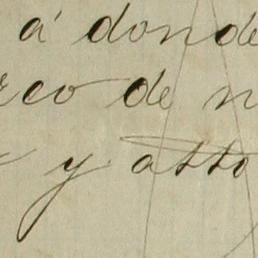 á donde
rco de n
y atto